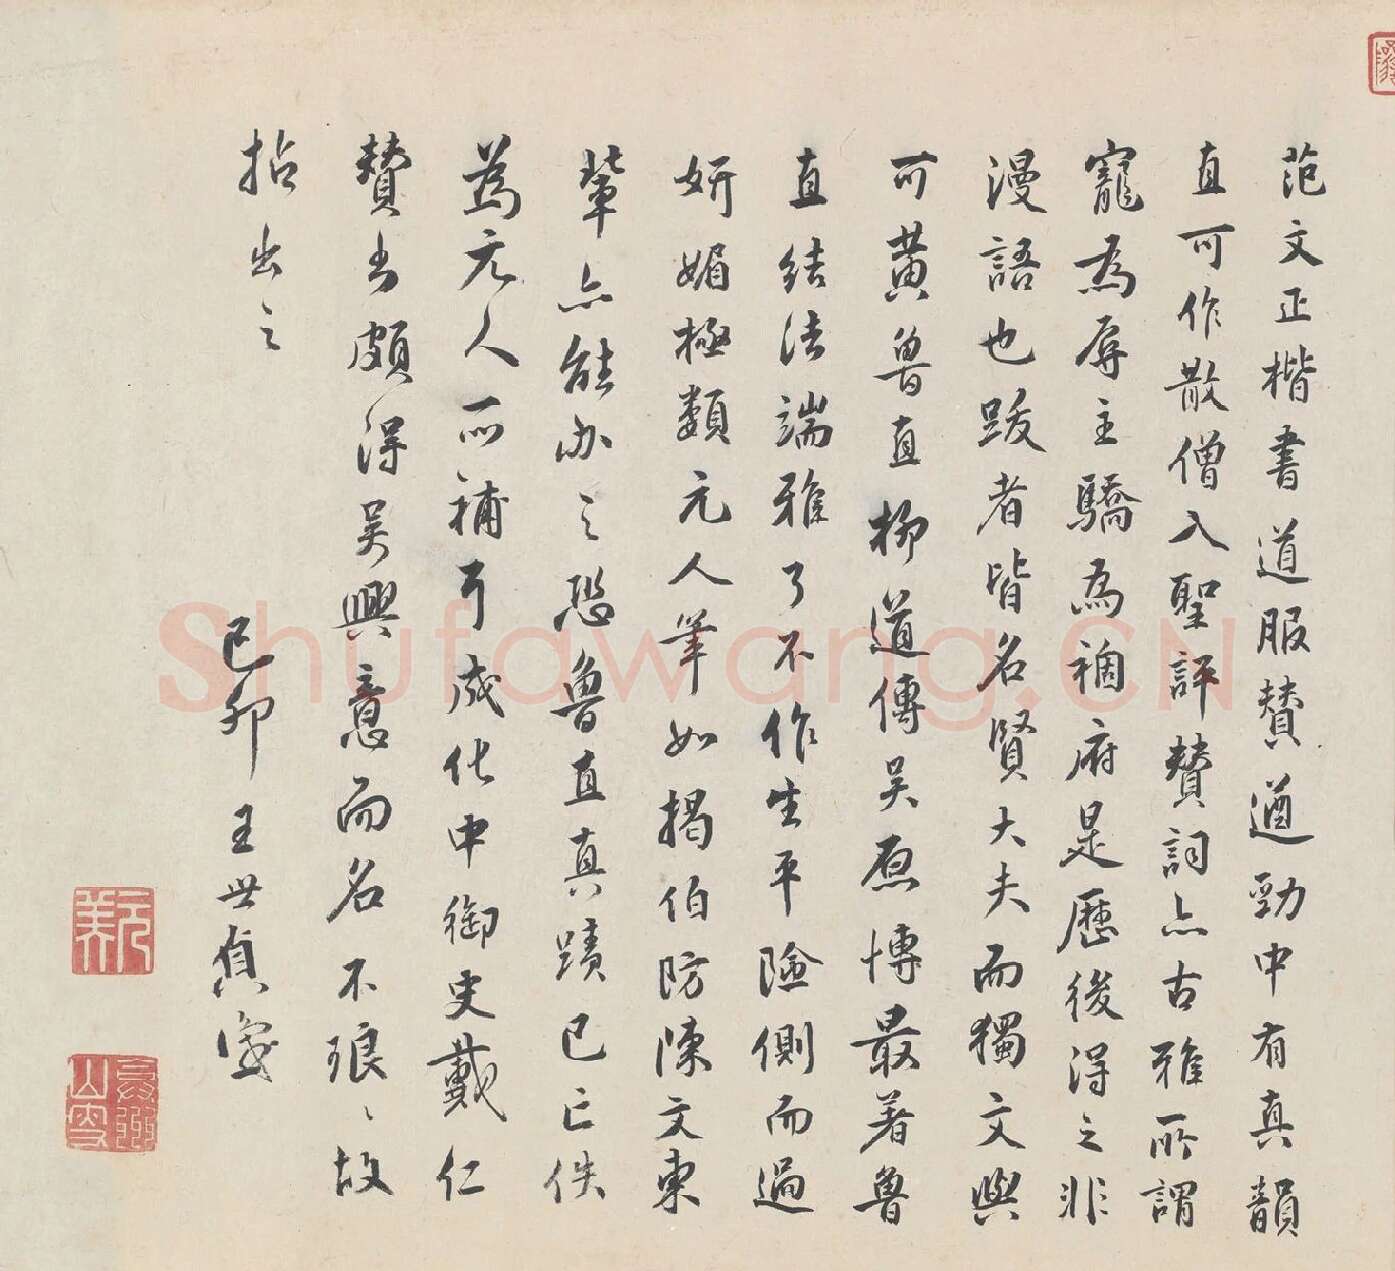 范文正楷書道服贊遒勁中有真韻
直可作散僧入聖評贊詞亦古雅所謂
寵為辱主驕為禍府是歷後得之非
漫語也跋者皆名賢大夫而獨文與
可黃魯直柳道傳吳原博最著魯
直結法端雅了不作生平險側而過
妍媚極類元人筆如揭伯防陳文東
輩亦能辦之恐魯直真蹟已亡佚
為元人所補耳成化中御史戴仁
贊書頗得吳興意而名不琅琅故
拈出之
己卯王世貞識
Shufawang.CN